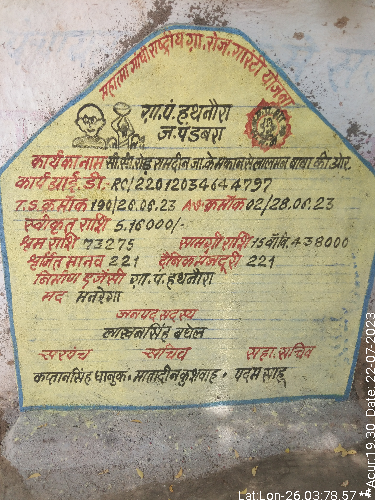 महात्मा गांधी राष्ट्रीय ग्रा. रोज. गारंटी योजना
ग्रा.पं. हथनौरा
ज.पं डबरा
कार्य का नाम सी.सी. रोड रामदीन जा. के मकान से लालमन बाबा की ओर
कार्य आई. डी.- RC/22012034644797
T.S. क्रमांक 190/26.06.23 A.S क्रमांक 02/28.06.23
स्वीकृत राशि 5.16000/-
श्रम राशि 73275 सामग्री राशि 438000
श्रजित मानव 221 दैनिक मजदूरी 221
निर्माण एजेंसी ग्रा.पं. हथनौरा
मद मनरेगा
जनपद सदस्य
लाखनसिंह बघेल
सरपंच सचिव सहा. सचिव
कप्तानसिंह धानुक. मातादीन कुशवाह. पदम साहू
Lat:Lon-26 03:78.57
**Acur19.30 Date, 22-07-2023